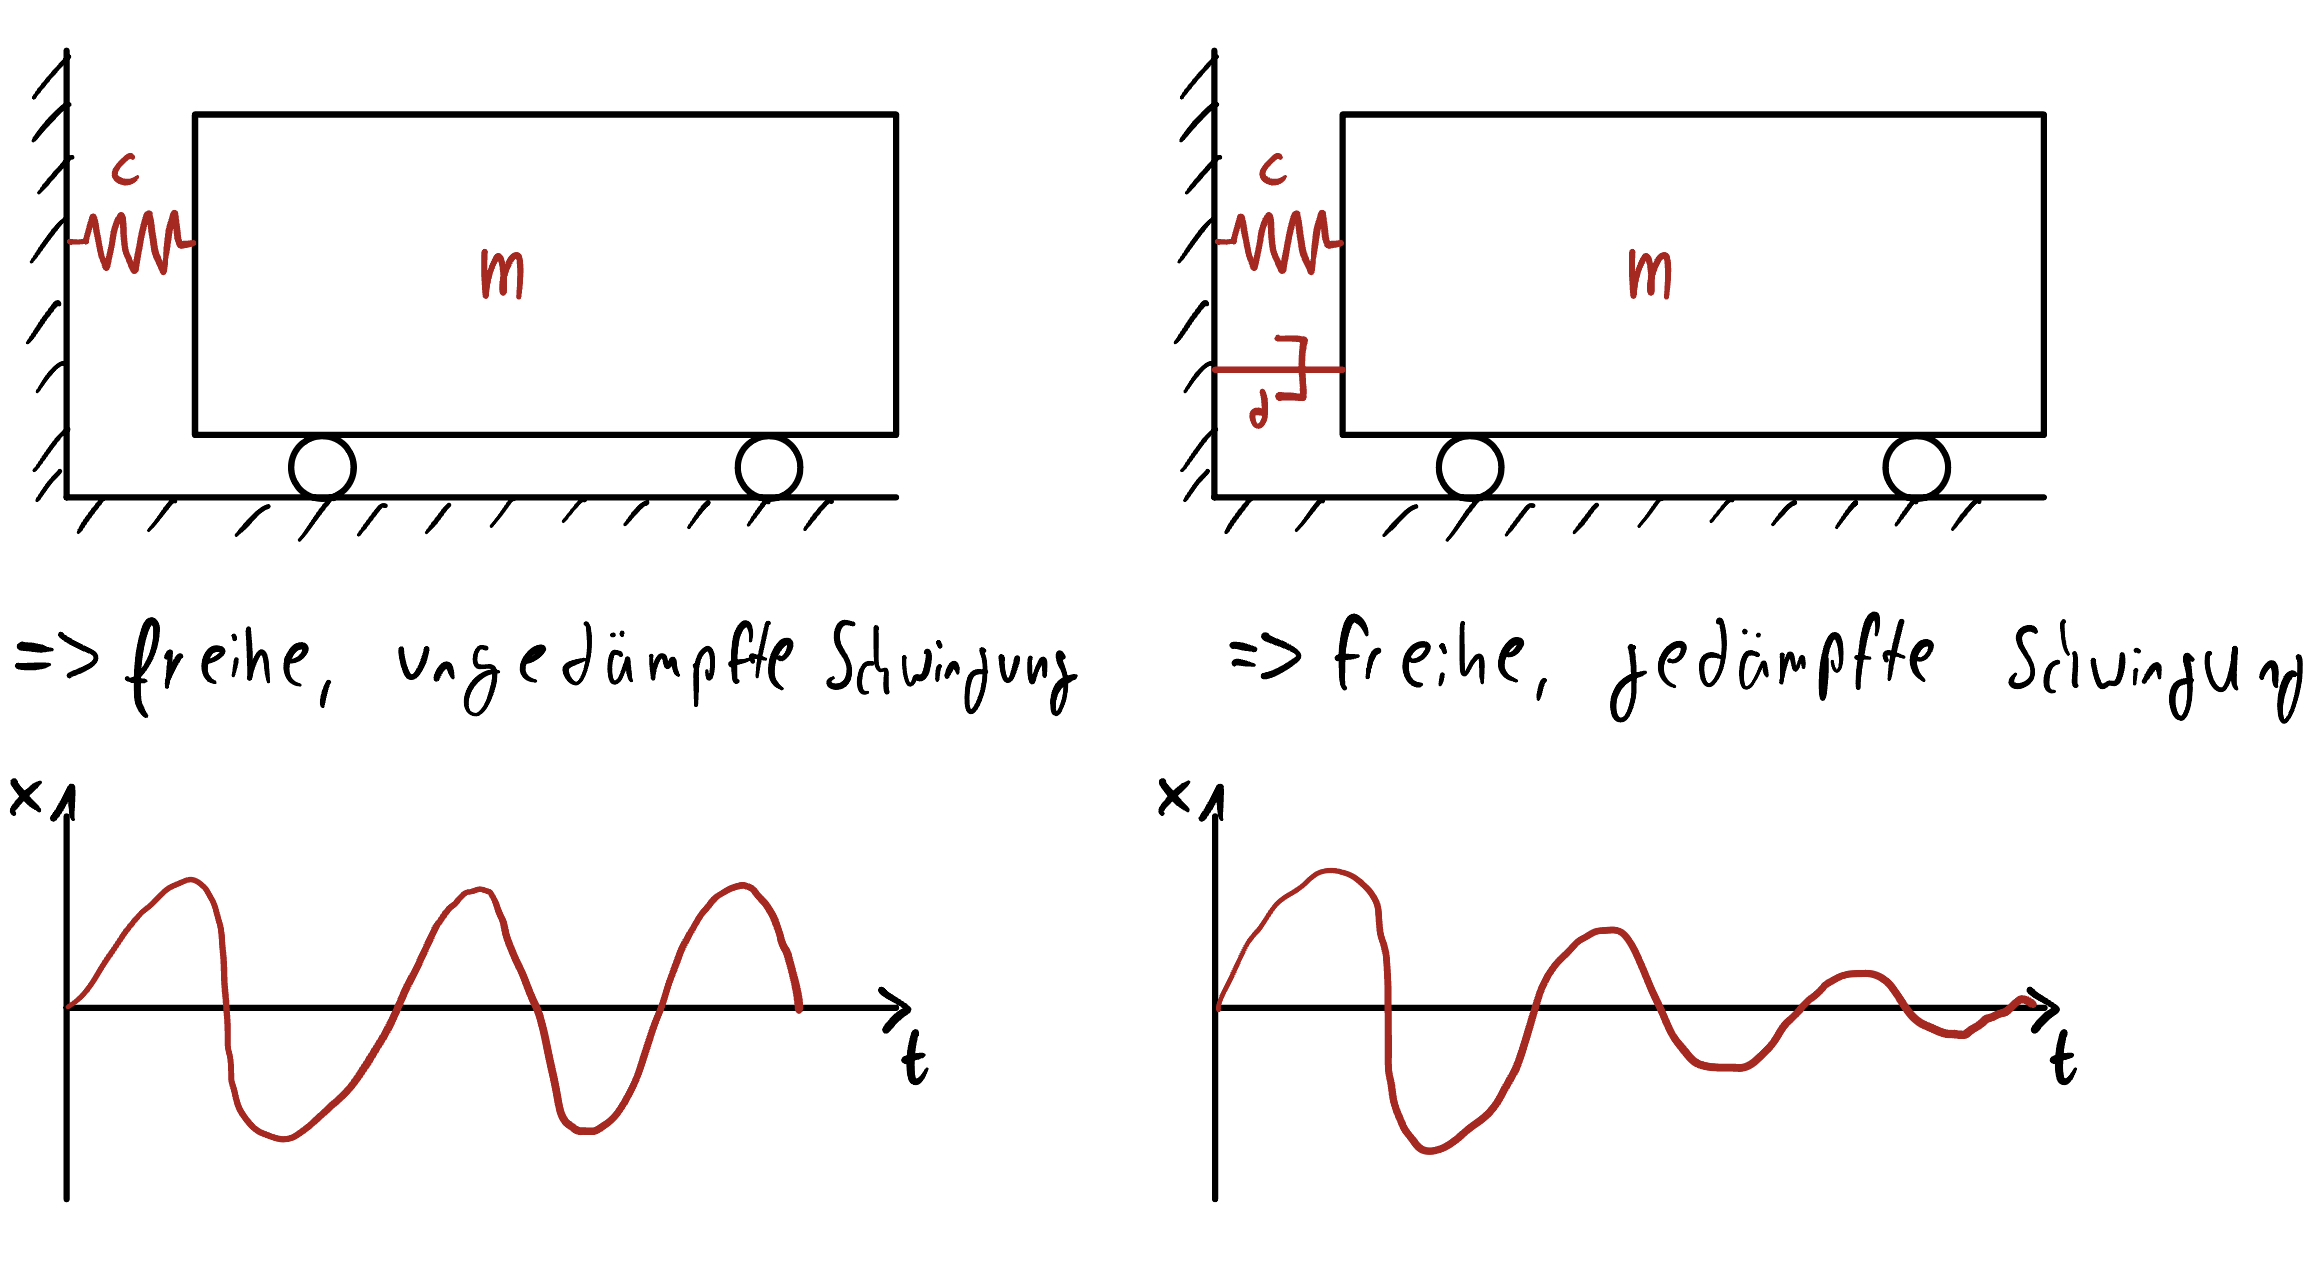 c
m
c
m
d
=> freihe, ungedämpfte Schwingung
=> freihe, gedämpfte Schwingung
x
t
x
t